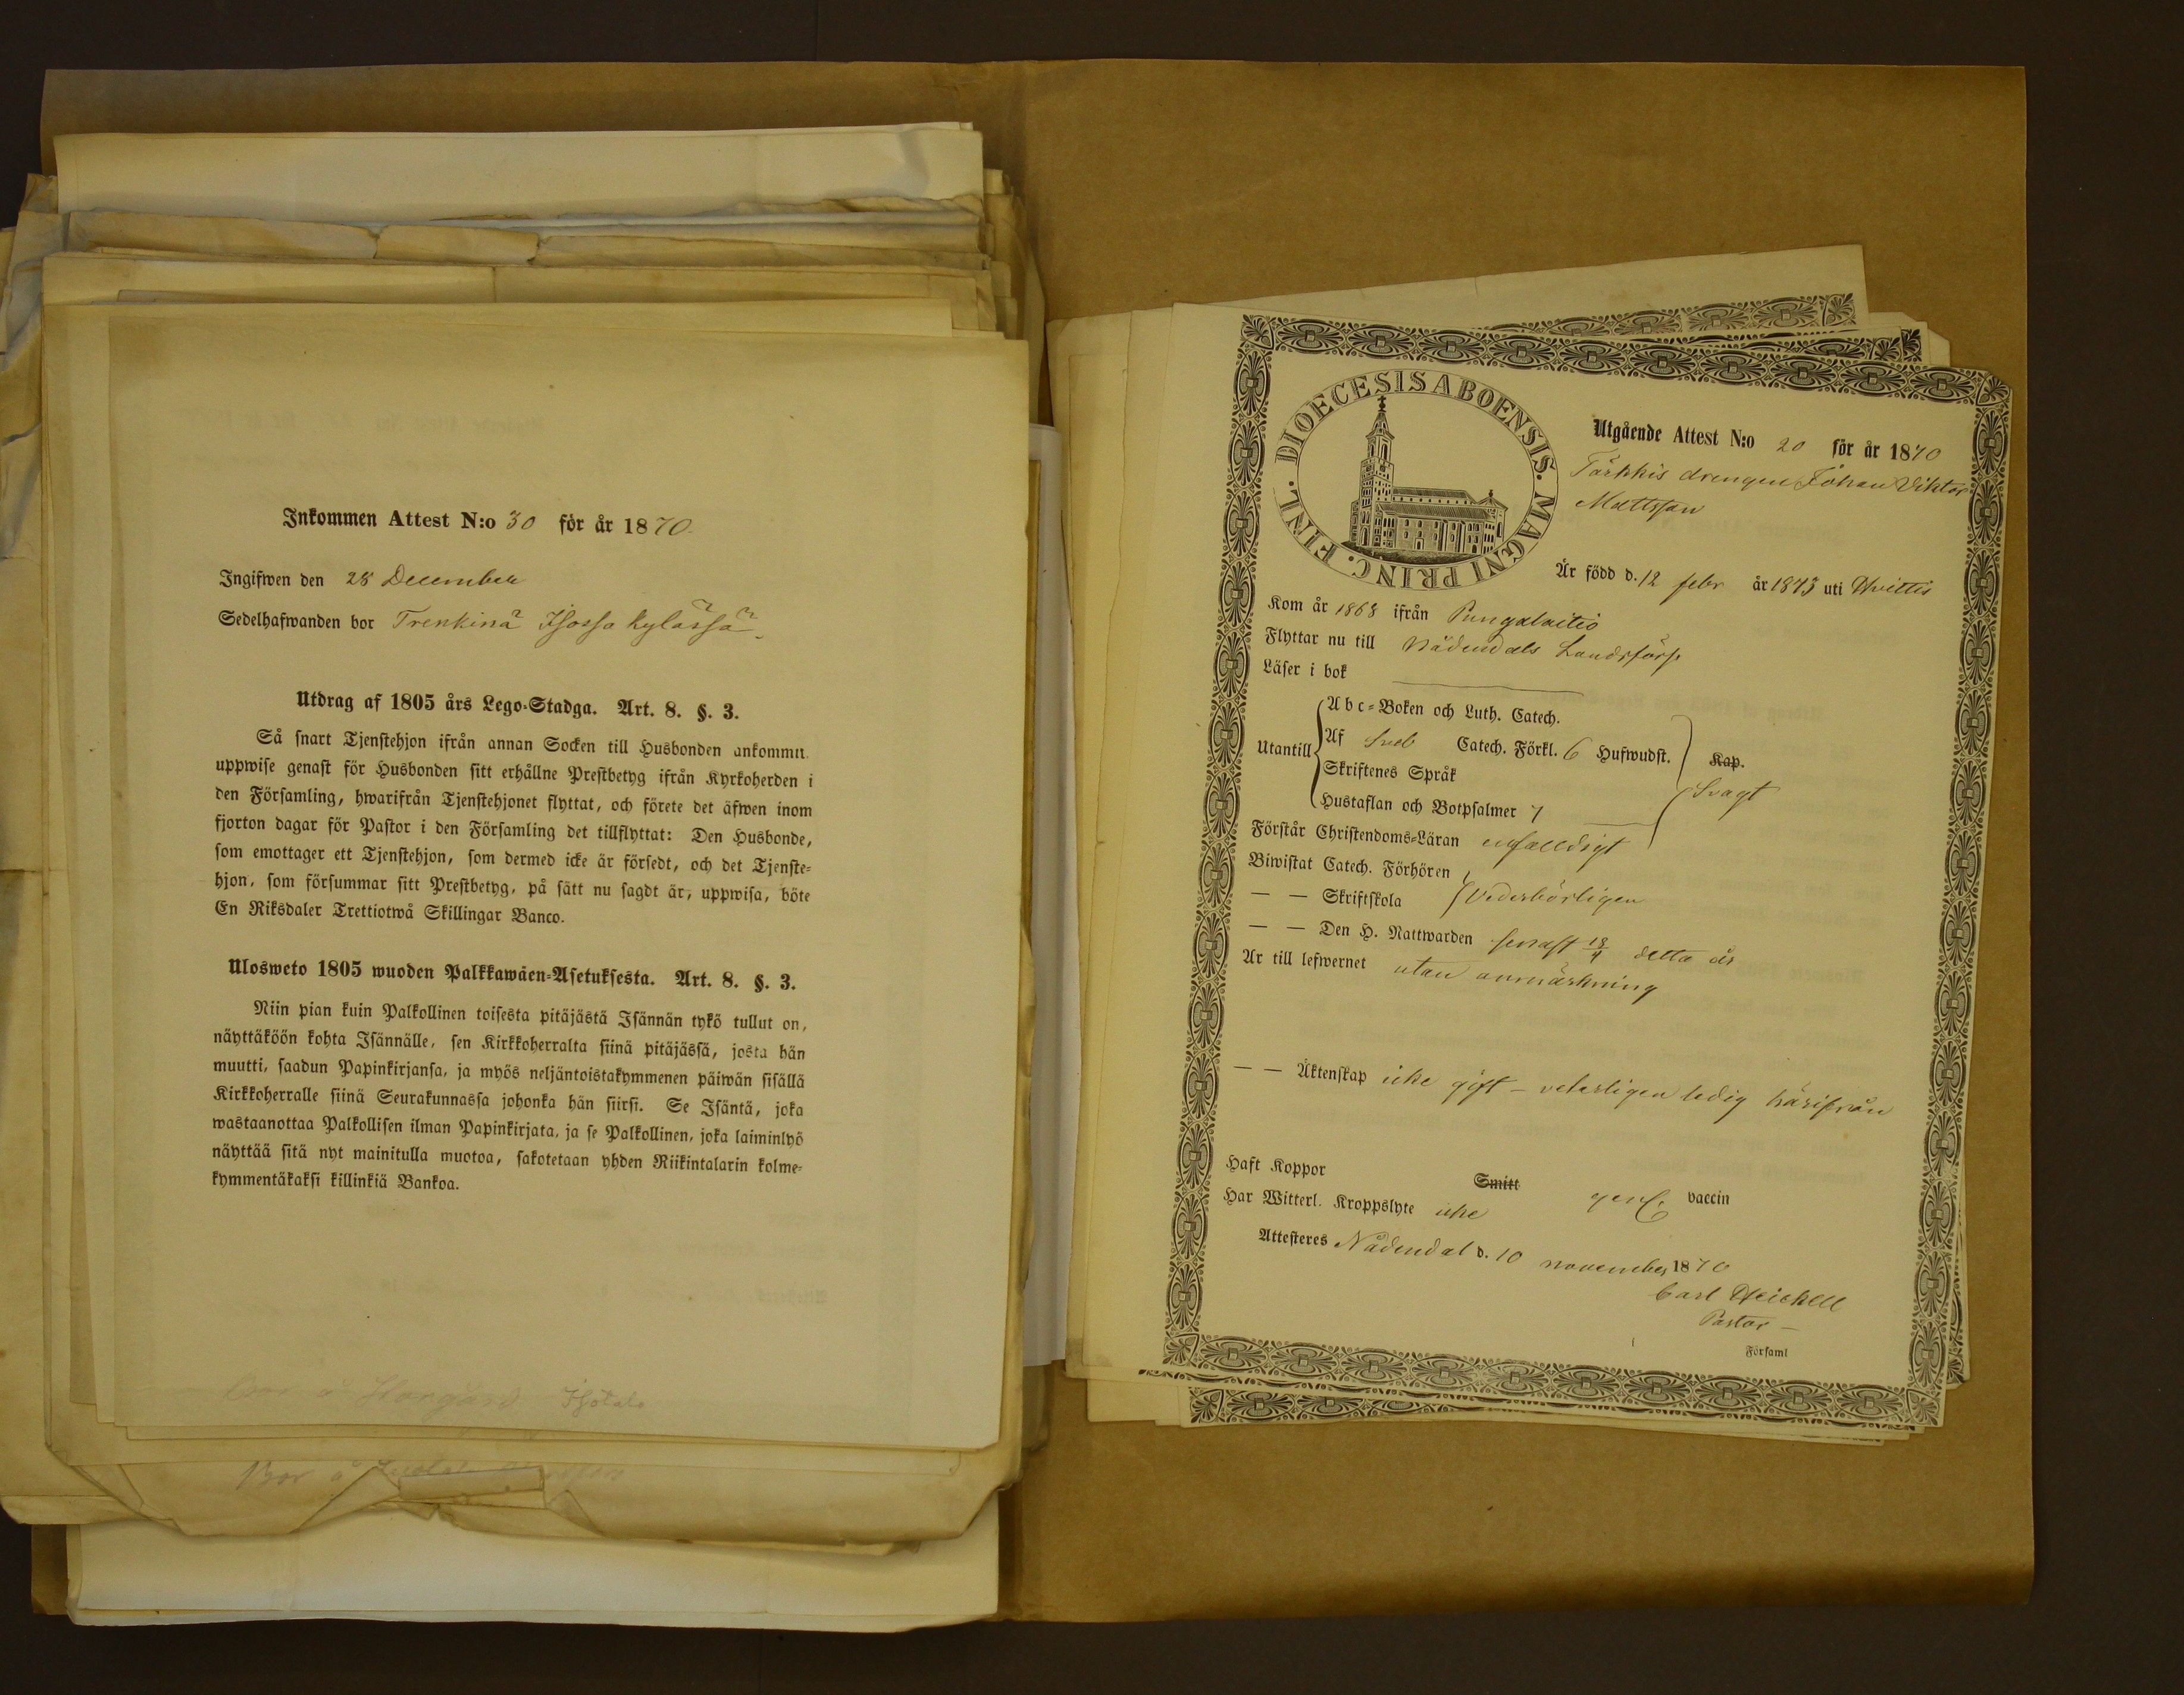 Inkommen Attest N:o 30 för år 1870.
Ingifwen den 28 December
Sedelhafwanden bor Trenkinä Isossa kylässä.
Utdrag af 1805 års Lego-Stadga. Art. 8. §. 3.
Så snart Tjenstehjon ifrån annan Socken till Husbonden ankommit,
uppwise genast för Husbonden sitt erhållne Prestbetyg ifrån Kyrkoherden i
den Församling, hwarifrån Tjenstehjonet flyttat, och förete det äfwen inom
fjorton dagar för Pastor i den Församling det tillflyttat: Den Husbonde,
som emottager ett Tjenstehjon, som dermed icke är försedt, och det Tjenste-
hjon, som försummar sitt Prestbetyg, på sätt nu sagdt är, uppwisa, böte
En Riksdaler Trettiotwå Skillingar Banco.
Ulosweto 1805 wuoden Palkkawäen-Asetuksesta. Art. 8. §. 3.
Niin pian kuin Palkollinen toisesta pitäjästä Isännän tykö tullut on,
näyttäköön kohta Isännälle, sen Kirkkoherralta siinä pitäjässä, josta hän
muutti, saadun Papinkirjansa, ja myös neljäntoistakymmenen päiwän sisällä
Kirkkoherralle siinä Seurakunnassa johonka hän siirsi. Se Isäntä, joka
wastaanottaa Palkollisen ilman Papinkirjata, ja se Palkollinen, joka laiminlyö
näyttää sitä nyt mainitulla muotoa, sakotetaan yhden Riikintalarin kolme-
kymmentäkaksi killinkiä Bankoa.
Bor å
DIOECESIS ABOENSIS. MAGNI PRINC. FINL.
Utgående Attest N:o 20 för år 1870
Tärkkis drengen Johan Viktor
Mattsson
Är född d. 12 febr år 1843 uti Hvittis
Kom år 1868 ifrån Pungalaitio
Flyttar nu till Nådendals Landsförs.
Läser i bok
Utantill
Abc-Boken och Luth. Catech.
Af Sveb Catech. Förkl. 6 Hufwudst.
Skriftenes Språk
Hustaflan och Botpsalmer 7
Kap.
Svagt
Förstår Christendoms-Läran enfalldigt
Biwistat Catech. Förhören
— — Skriftskola Vederbörligen
— — Den H. Nattwarden senast 18/4 detta år
Är till lefwernet utan anmärkning
— — Äktenskap icke gift - veterligen ledig härifrån
Haft Koppor Smitt vaccin
Har Witterl. Kroppslyte icke
Attesteres Nådendal d. 10 november 1870
Carl
Pastor
Församl